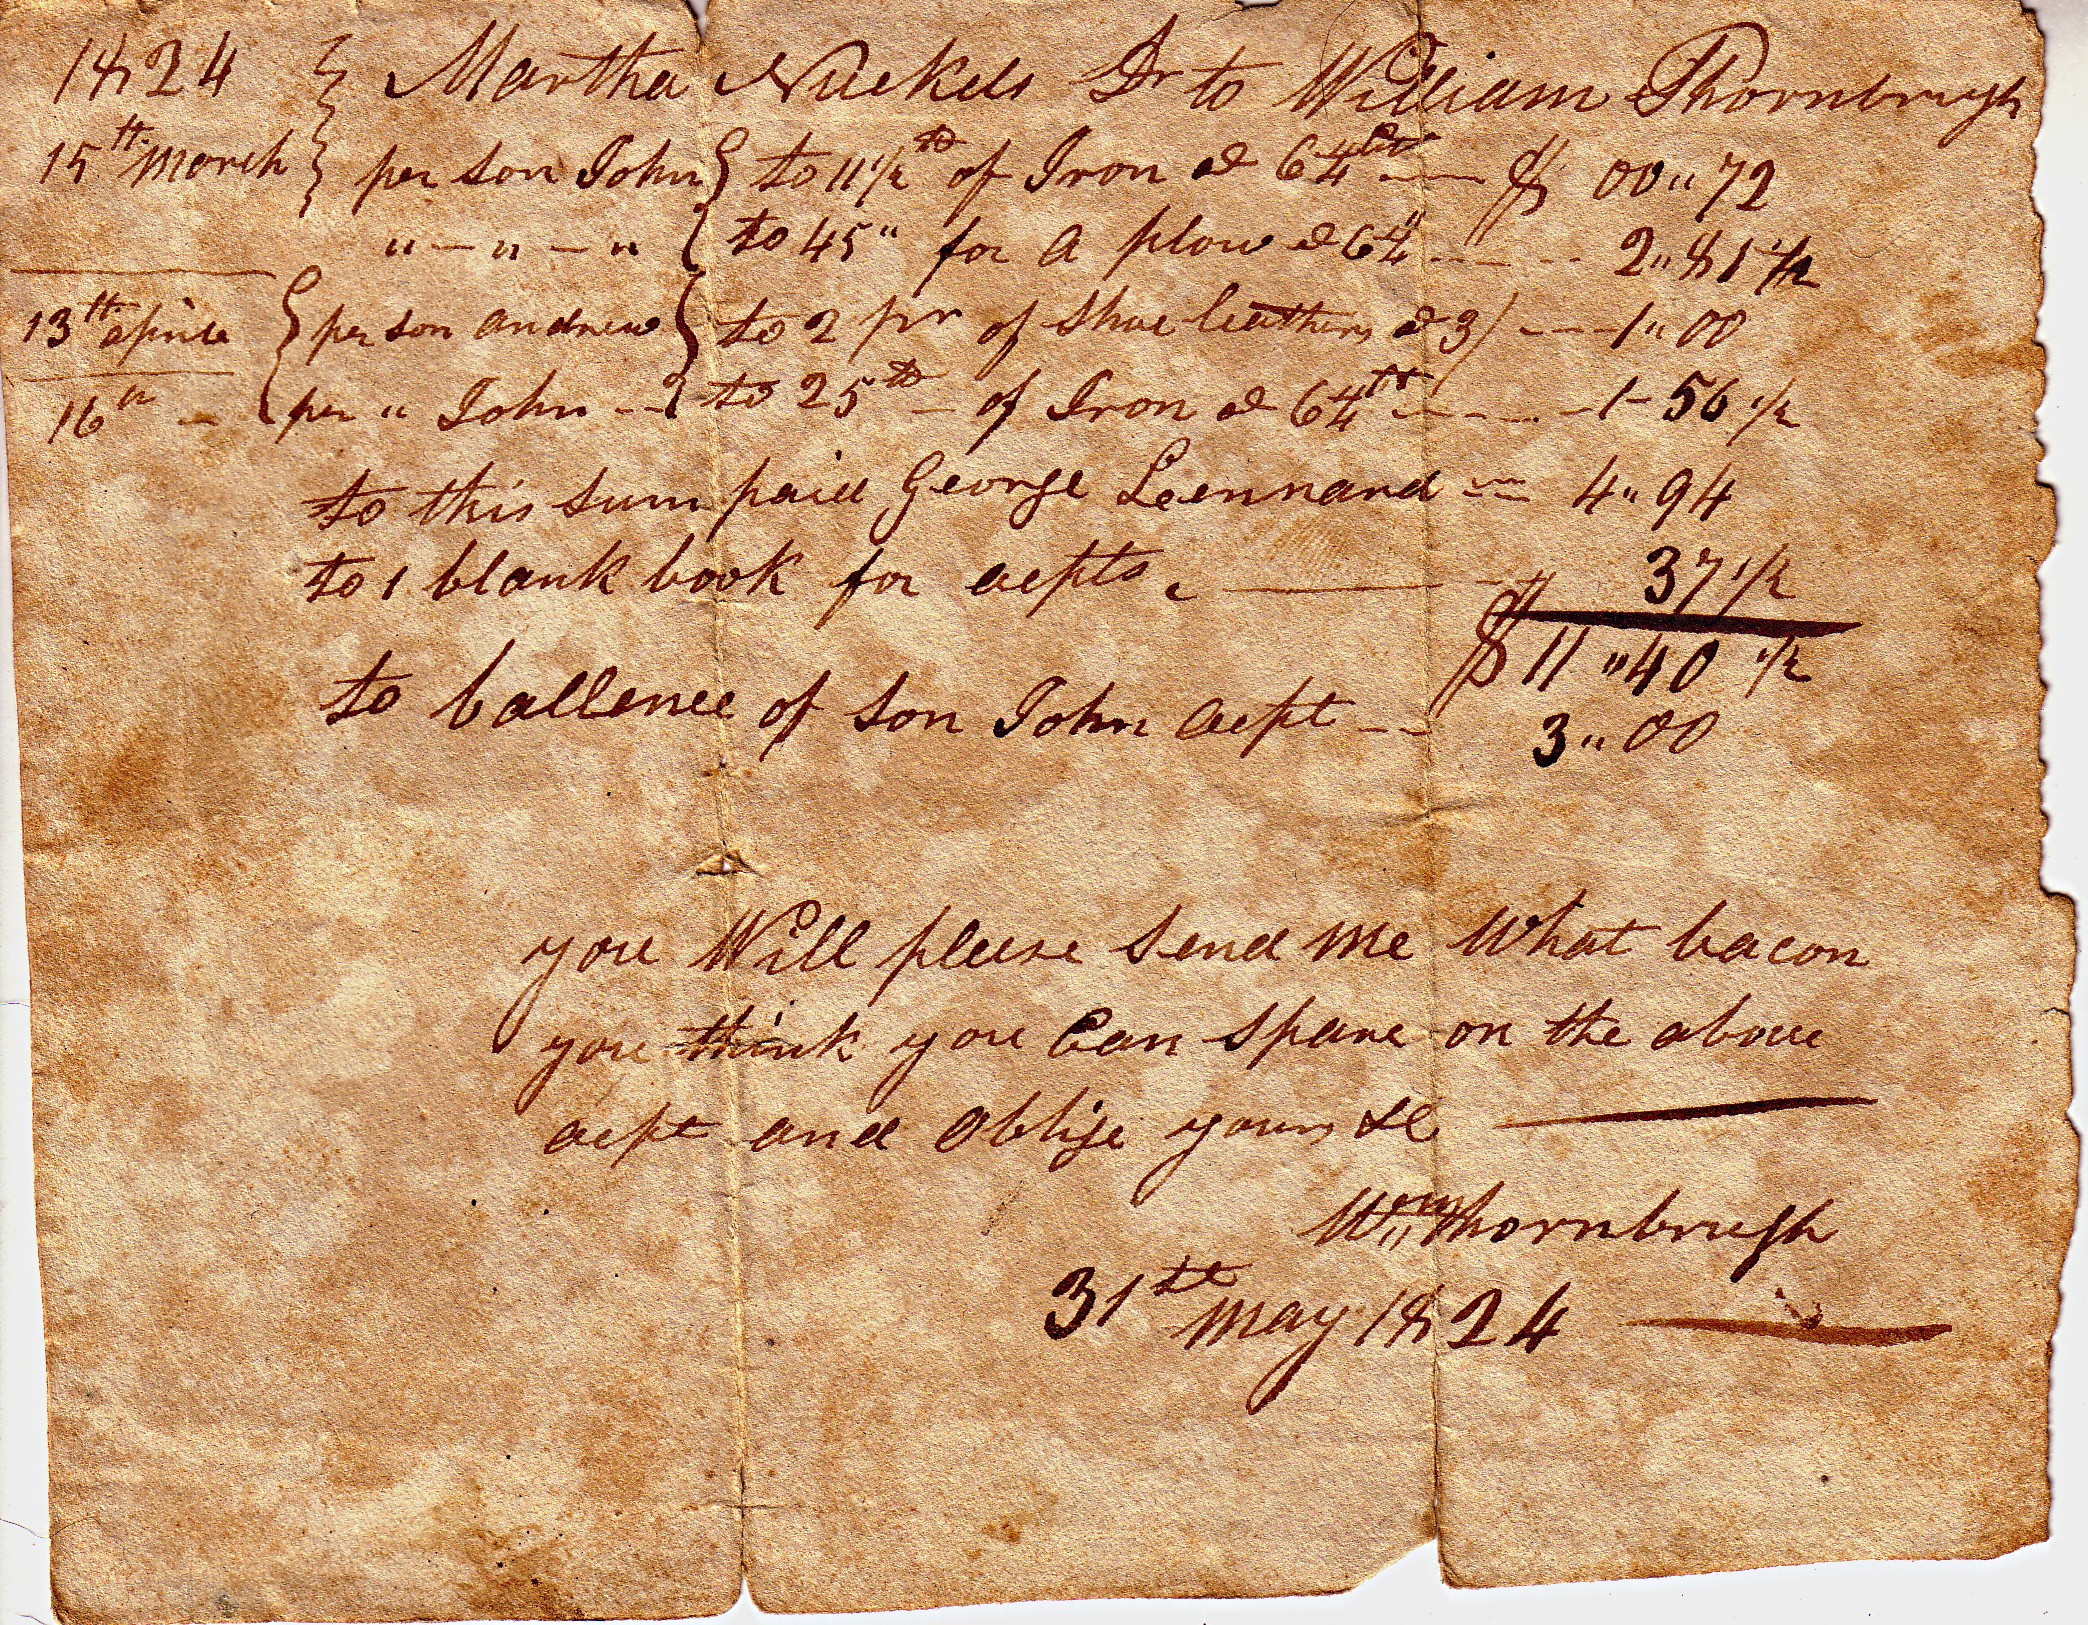 1824 } Martha Nuckels Dr to William Thornbrugh
15th March } per son John } to 11 1/2 lb of Iron @ 6 1/4 cts — $ 00 " 72
" — " — " { to 45 " for a plow @ 6 1/4 — 2 " 81 1/4
13th aprile { per son andrew } to 2 pr of Shoe leathers @ 3/ --- 1 " 00
16th — { per " John -- } to 25 lb — of Iron @ 6 1/4 cts ---- 1 - 56 1/2
to this sum paid George Leennard -- 4 " 94
to 1 blank book for acpts. — 37 1/2
$ 11 " 40 1/2
to ballence of son John acpt -- 3 " 00
you Will pleese send me What bacon
you think you Can spare on the above
acpt and oblige yours &c —
Wm Thornbrugh
31st May 1824 —